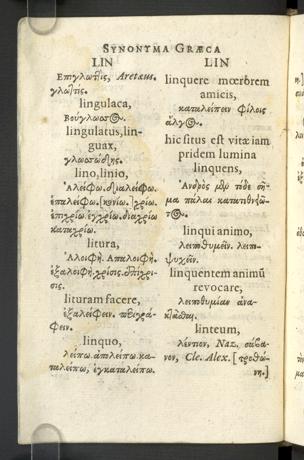 SYNONYMA GRÆCA
LIN
Επιγλωτὶς, Aretæus.
γλωτὶς.
lingulaca,
Βούγλωσσος.
lingulatus, lin-
guax,
γλωσσώδης.
lino, linio,
Ἀλείφω. διαλείφω.
ἐπαλείφω. [κονίω] χρίω.
ἐπιχρίω. ἐγχρίω. διαχρίω
καταχρίω.
litura,
Ἀλοιφή. Ἀπαλοιφή.
ἐξαλοιφή. χρίσις. ἐπίχρι-
σις.
lituram facere,
ἐξαλείφειν. περιγρά-
φειν.
linquo,
λείπω. ἀπολείπω. κα-
ταλείπω, ἐγκαταλείπω.
LIN
linquere mœrorem
amicis,
καταλείπειν φίλοις
ἄλγος.
hic situs est vitæ iam
pridem lumina
linquens,
Ἀνδρὸς μὲν τόδε σῆ-
μα πάλαι κατατεθνηῶ-
τος.
linqui animo,
λειποθυμεῖν. λειπο-
ψυχεῖν.
linquentem animū
revocare,
λειποθυμίαν ἀνα-
linteum,
λέντιον, Naz. σάβα-
νον, Cle. Alex. [ τροθώ-
νη.]